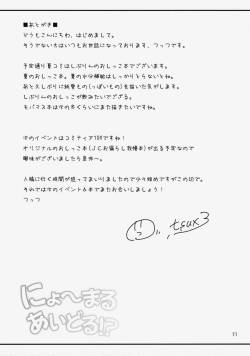 ■あとがき■
どうもこんにちわ、はじめまして。
そうでない方はいつもお世話になっております、つっつです。
予定通り夏コミはしぶりんのおしっこ本でございます。
夏のおしっこ本。夏の水分補給はしっかりとらないとね。
あとスしぶりんに純愛もの(っぽいもの)を描いた気がします。
しぶりんのおしっこが飲みたいでござる。
モバマス本は次の冬くらいにまた描きたいですね。
次のイベントはコミティア109ですね！
オリジナルのおしっこ本(JCお漏らし我慢本)が出る予定なので
興味がございましたら是非〜
入稿に行く時間が迫ってまいりましたので少々短めですがこの辺で。
それでは次のイベント&本でまたお会いしましょう！
つっつ
tsux3
にょへまる
あいどる!?